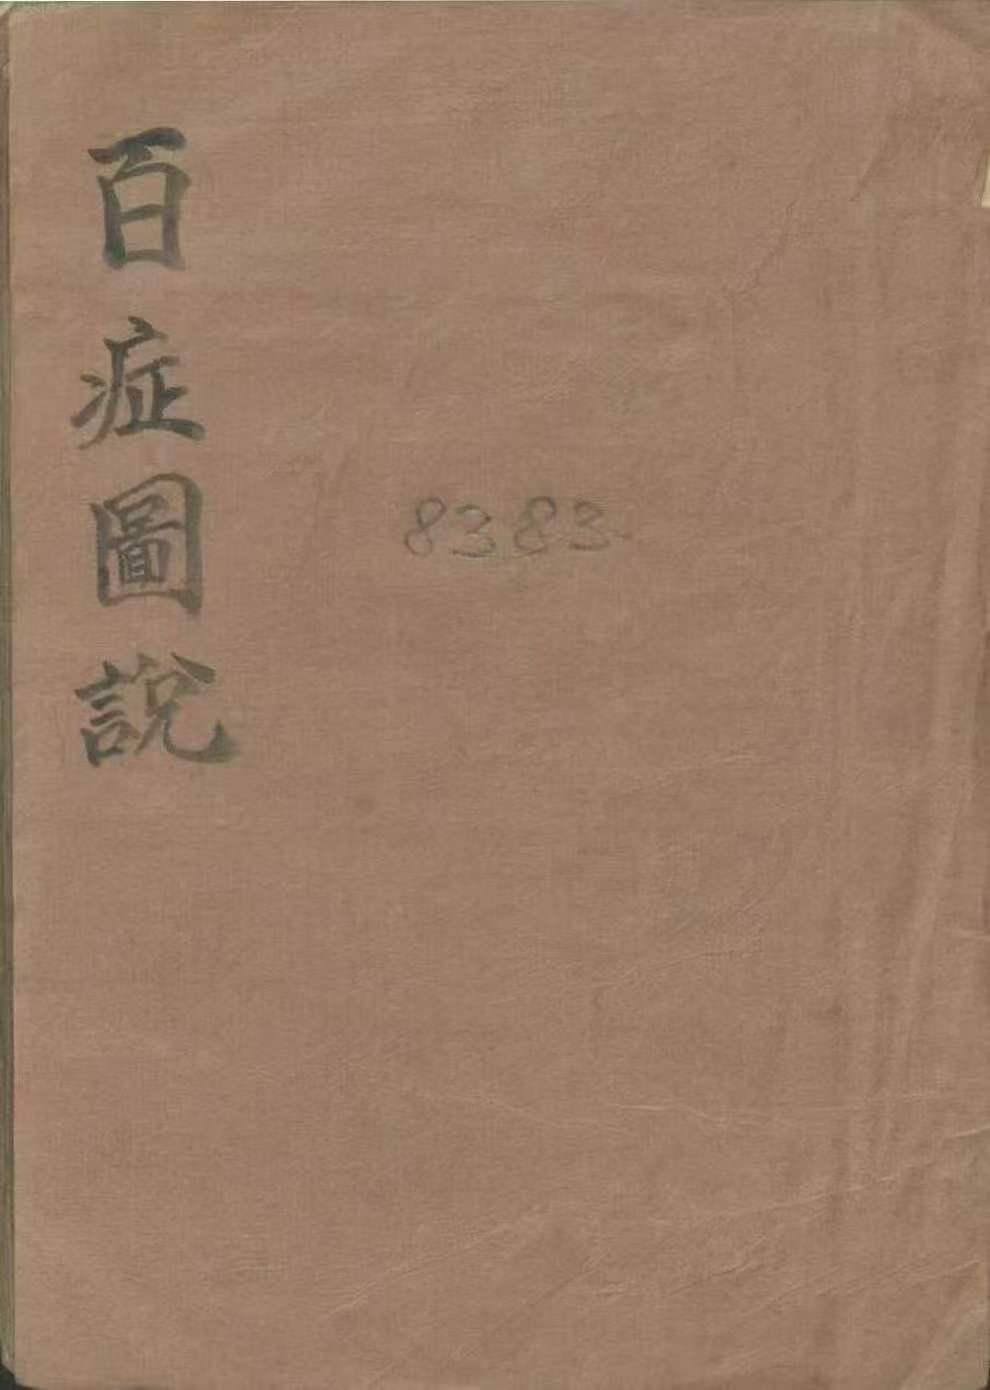 百症圖說
8383